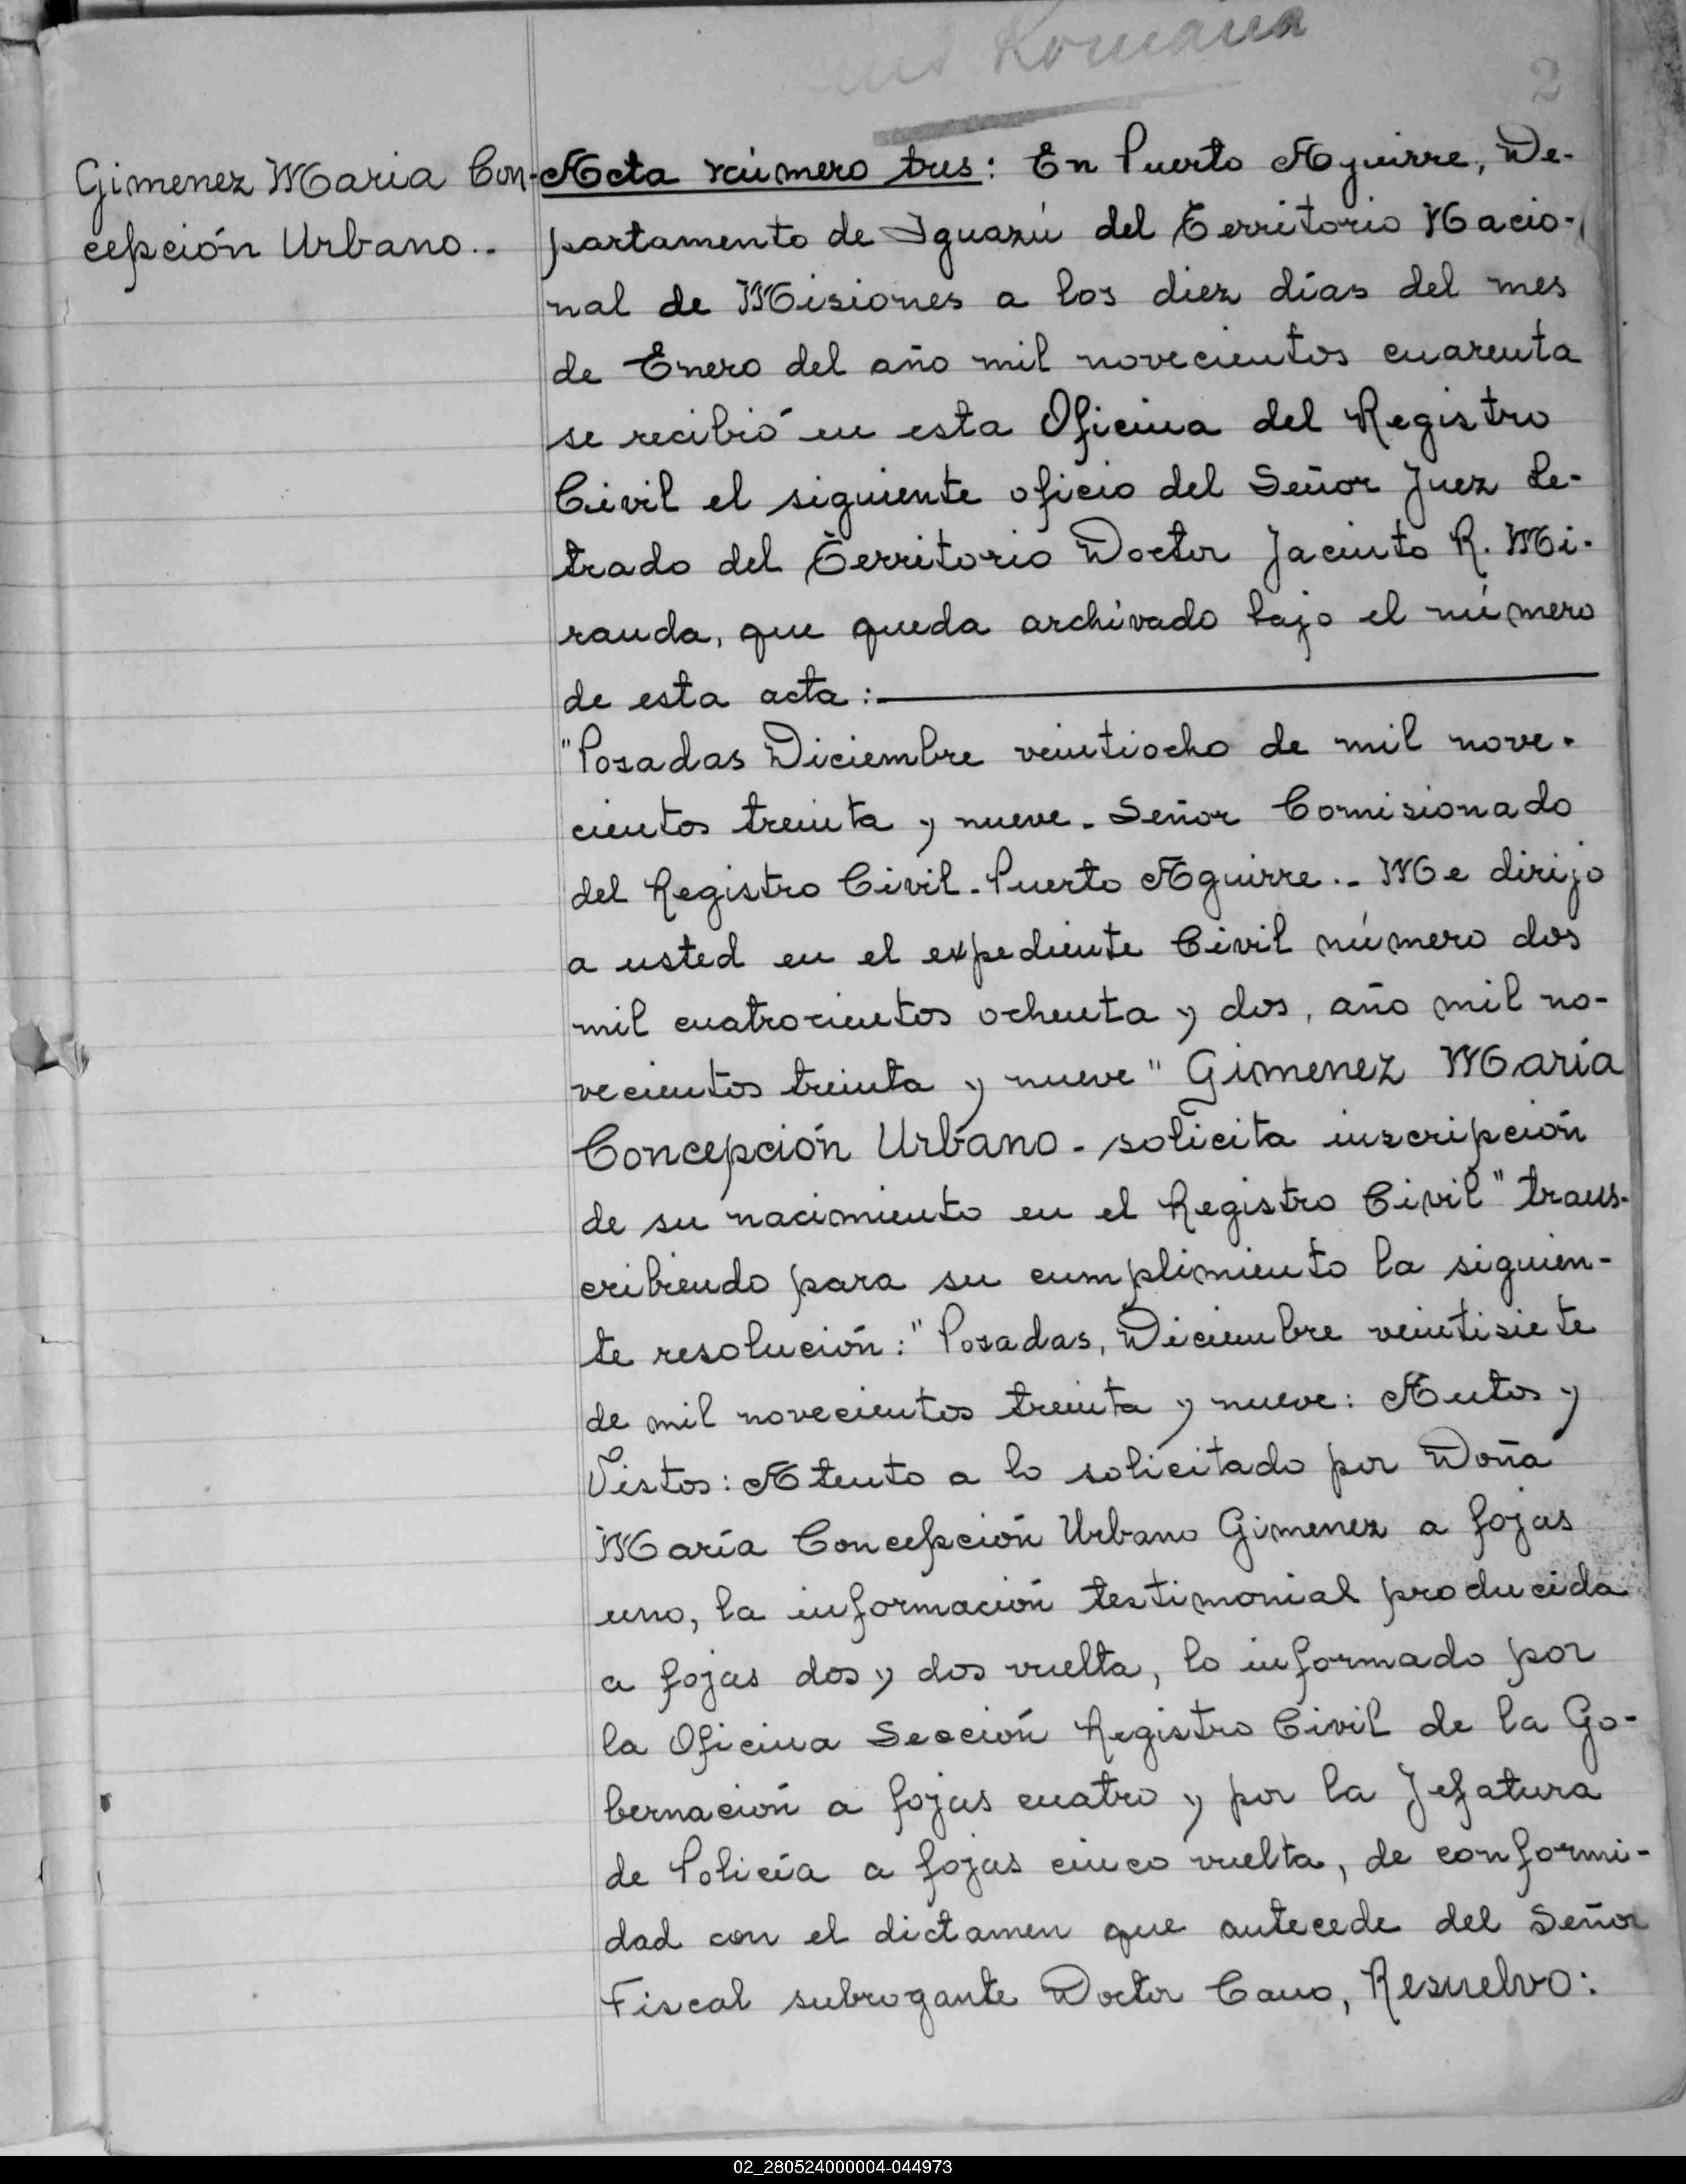 Romana
2
Gimenez Maria Con-
cepción Urbano..
Acta número tres: En Puerto Aguirre, De-
partamento de Iguazú del Territorio Nacio-
nal de Misiones a los diez días del mes
de Enero del año mil novecientos cuarenta
se recibió en esta Oficina del Registro
Civil el siguiente oficio del Señor Juez Le-
trado del Territorio Doctor Jacinto R. Mi-
randa, que queda archivado bajo el número
de esta acta:
"Posadas Diciembre veintiocho de mil nove-
cientos treinta y nueve. Señor Comisionado
del Registro Civil. Puerto Aguirre.. Me dirijo
a usted en el expediente Civil número dos
mil cuatrocientos ochenta y dos, año mil no-
vecientos treinta y nueve "Gimenez María
Concepción Urbano - solicita inscripción
de su nacimiento en el Registro Civil" trans-
cribiendo para su cumplimiento la siguien-
te resolución: "Posadas, Diciembre veintisiete
de mil novecientos treinta y nueve: Autos y
Vistos: Atento a lo solicitado por Doña
María Concepción Urbano Gimenez a fojas
uno, la información testimonial producida
a fojas dos y dos vuelta, lo informado por
la Oficina Sección Registro Civil de la Go-
bernación a fojas cuatro y por la Jefatura
de Policía a fojas cinco vuelta, de conformi-
dad con el dictamen que antecede del Señor
Fiscal subrogante Doctor Cano, Resuelvo:
02_280524000004-044973